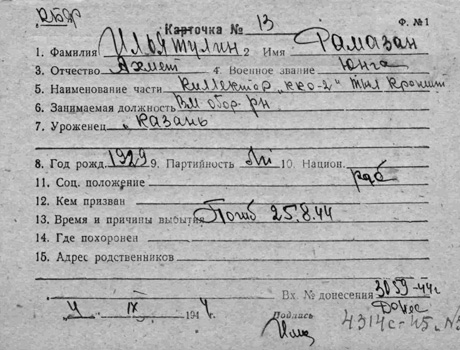 КБФ
Карточка № 13
Ф. №1
1. Фамилия Ильятулин 2 Имя Рамазан
3. Отчество Ахмет 4. Военное звание Юнга
5. Наименование части Коллектор „ККО-2" Тыл Кроншт
6. Занимаемая должность ВМ обор. рн
7. Уроженец г. Казань
8. Год рожд. 1929 9. Партийность б/п 10. Национ.
11. Соц. положение раб
12. Кем призван
13. Время и причины выбытия Погиб 25.8.44
14. Где похоронен
15. Адрес родственников
Вх. № донесения 3059-44с
4 IX 1944 г. Донес
Подпись 4314с-45г.